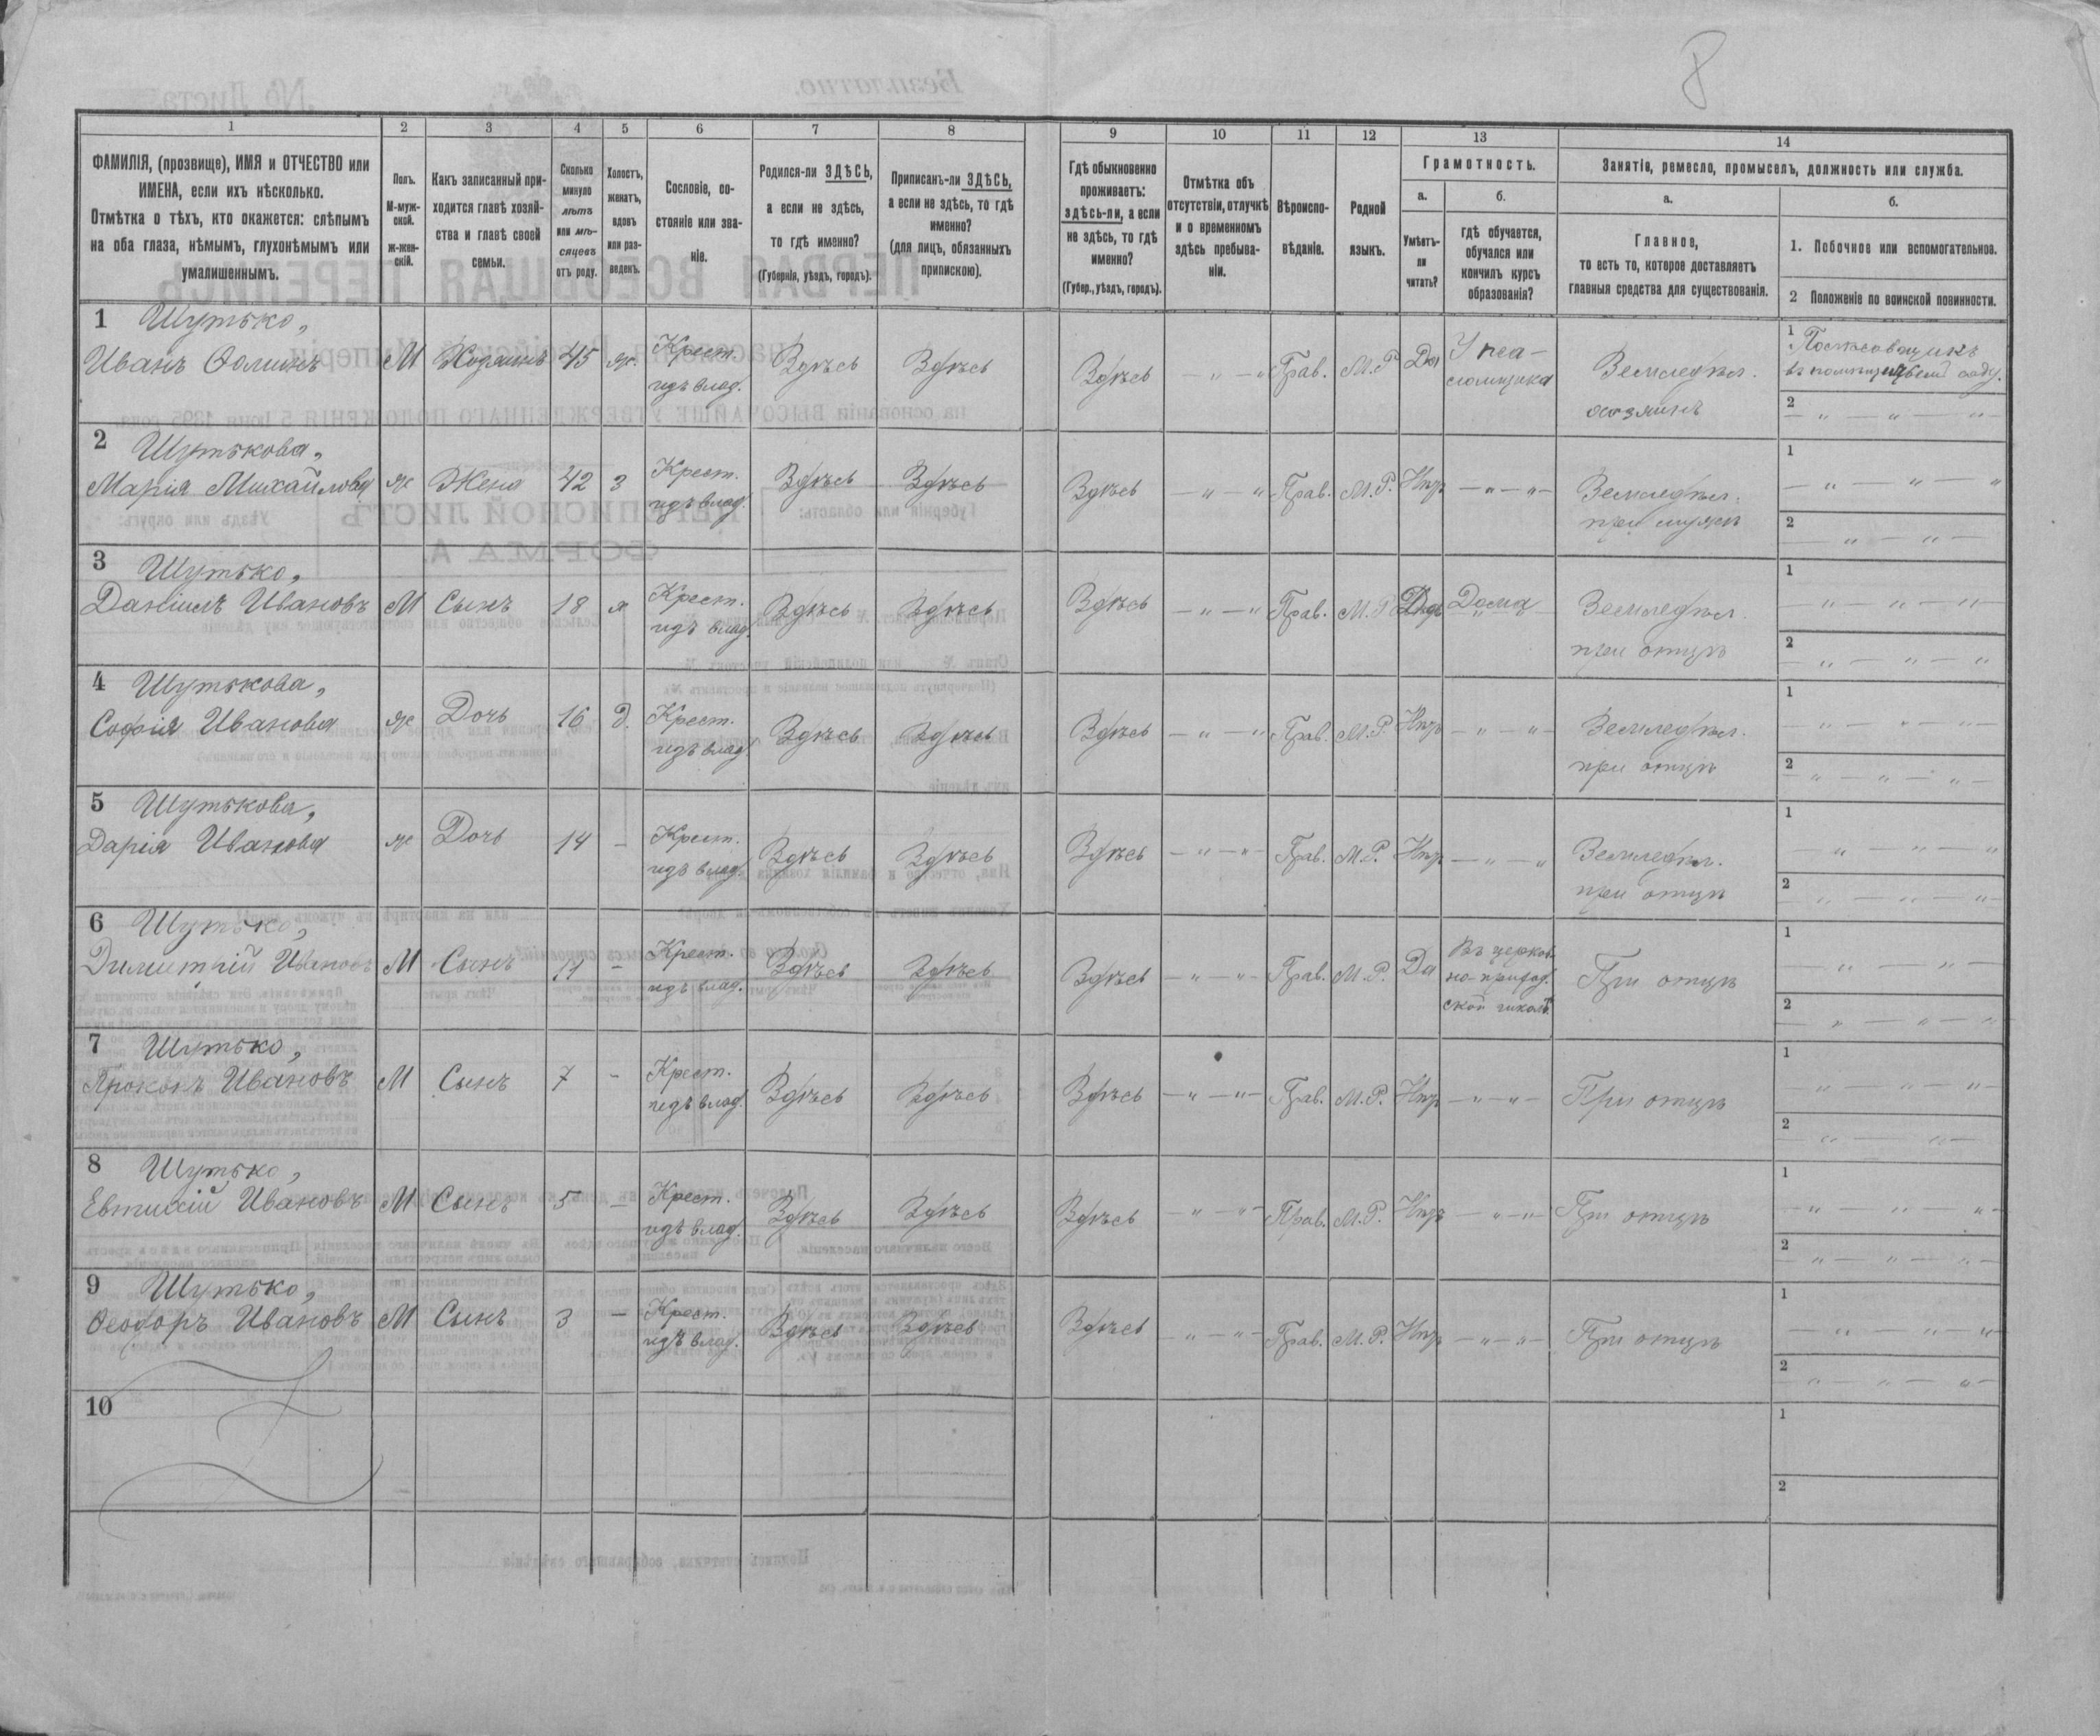 8
1
2
3
4
5
6
7
8
9
10
11
12
13
14
ФАМИЛІЯ, (прозвище), ИМЯ и ОТЧЕСТВО или
ИМЕНА, если ихъ нѣсколько.
Отмѣтка о тѣхъ, кто окажется: слѣпымъ
на оба глаза, нѣмымъ, глухонѣмымъ или
умалишеннымъ.
Полъ.
М-муж-
ской.
ж-жен-
скій.
Какъ записанный при-
ходится главѣ хозяй-
ства и главѣ своей
семьи.
Сколько
минуло
лѣтъ
или мѣ-
сяцевъ
отъ роду.
Холостъ,
женатъ,
вдовъ
или раз-
веденъ.
Сословіе, со-
стояніе или зва-
ніе.
Родился-ли ЗДѢСЬ,
а если не здѣсь,
то гдѣ именно?
(Губернія, уѣздъ, городъ).
Приписанъ-ли ЗДѢСЬ,
а если не здѣсь, то гдѣ
именно?
(для лицъ, обязанныхъ
припискою).
Гдѣ обыкновенно
проживаетъ:
здѣсь-ли, а если
не здѣсь, то гдѣ
именно?
(Губер., уѣздъ, городъ).
Отмѣтка объ
отсутствіи, отлучкѣ
и о временномъ
здѣсь пребыва-
ніи.
Вѣроиспо-
вѣданіе.
Родной
языкъ.
Грамотность.
а.
Умѣетъ-
ли
читать?
б.
гдѣ обучается,
обучался или
кончилъ курсъ
образованія?
Занятія, ремесло, промыселъ, должность или служба.
а.
Главное,
то есть то, которое доставляетъ
главныя средства для существованія.
б.
1. Побочное или вспомогательное.
2 Положеніе по воинской повинности.
1 Шутько,
Иванъ Ѳоминъ М Хозяинъ 45 ж. Крест. Здѣсь Здѣсь Здѣсь — „ — „ Прав. М.Р Да У пса- Земледѣл. 1
изъ влад. ломщика хозяинъ 2 — „ — „ — „ —
2 Шутькова,
Марія Михайлова ж Жена 42 з Крест. Здѣсь Здѣсь Здѣсь — „ — „ Прав. М.Р. Нѣтъ — „ — „ — Земледѣл. 1 — „ — „ — „
изъ влад. при мужѣ 2 — „ — „ —
3 Шутько,
Даніилъ Ивановъ М Сынъ 18 х Крест. Здѣсь Здѣсь Здѣсь — „ — „ Прав. М.Р Да Дома Земледѣл. 1 — „ — „ — „
изъ влад. при отцѣ 2 — „ — „ — „
4 Шутькова,
Софія Иванова ж Дочь 16 д. Крест. Здѣсь Здѣсь Здѣсь — „ — „ Прав. М.Р. Нѣтъ — „ — „ — Земледѣл. 1 — „ — „ — „ —
изъ влад. при отцѣ 2 — „ — „ — „ —
5 Шутькова,
Дарія Иванова ж Дочь 14 — Крест. Здѣсь Здѣсь Здѣсь — „ — „ Прав. М.Р. Нѣтъ — „ — „ Земледѣл. 1 — „ — „ — „
изъ влад. при отцѣ 2 — „ — „ — „ —
6 Шутько,
Димитрій Ивановъ М Сынъ 11 — Крест. Здѣсь Здѣсь Здѣсь — „ — „ Прав. М.Р. Да Въ церков- При отцѣ 1 „ — „ —
изъ влад. но-приход- 2 — „ — „ — „
ской школѣ
7 Шутько,
Прокопъ Ивановъ М Сынъ 7 — Крест. Здѣсь Здѣсь Здѣсь — „ — „ — Прав. М.Р. Нѣтъ — „ — „ — При отцѣ 1 — „ — „ — „ —
изъ влад. 2 — „ — „ —
8 Шутько,
Евтихій Ивановъ М Сынъ 5 — Крест. Здѣсь Здѣсь Здѣсь — „ — „ — Прав. М.Р. Нѣтъ — „ — „ — При отцѣ 1 — „ — „ — „
изъ влад. 2 — „ — „ — „ —
9 Шутько,
Ѳеодоръ Ивановъ М Сынъ 3 — Крест. Здѣсь Здѣсь Здѣсь — „ — „ — Прав. М.Р. Нѣтъ — „ — „ — При отцѣ 1 — „ — „ — „
изъ влад. 2 — „ — „ — „ —
10
1
2